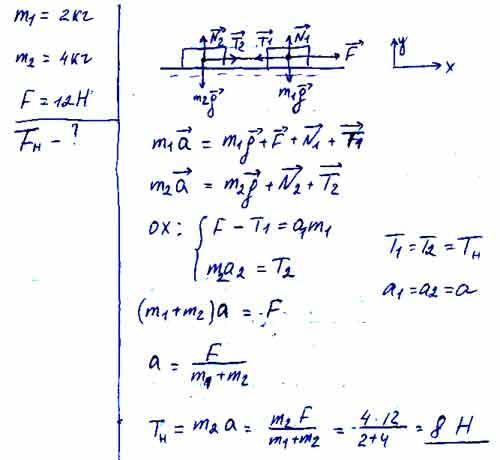 m₁ = 2кг
m₂ = 4кг
F = 12Н
Fн – ?
N₂ T₂ T₁ N₁ F
m₂g m₁g
y
x
m₁a = m₁g + F + N₁ + T₁
m₂a = m₂g + N₂ + T₂
ox: { F – T₁ = a₁m₁
m₂a₂ = T₂
T₁ = T₂ = Tн
a₁ = a₂ = a
(m₁ + m₂)a = F
a = F / (m₁ + m₂)
Tн = m₂a = m₂F / (m₁ + m₂) = 4·12 / (2+4) = 8 Н